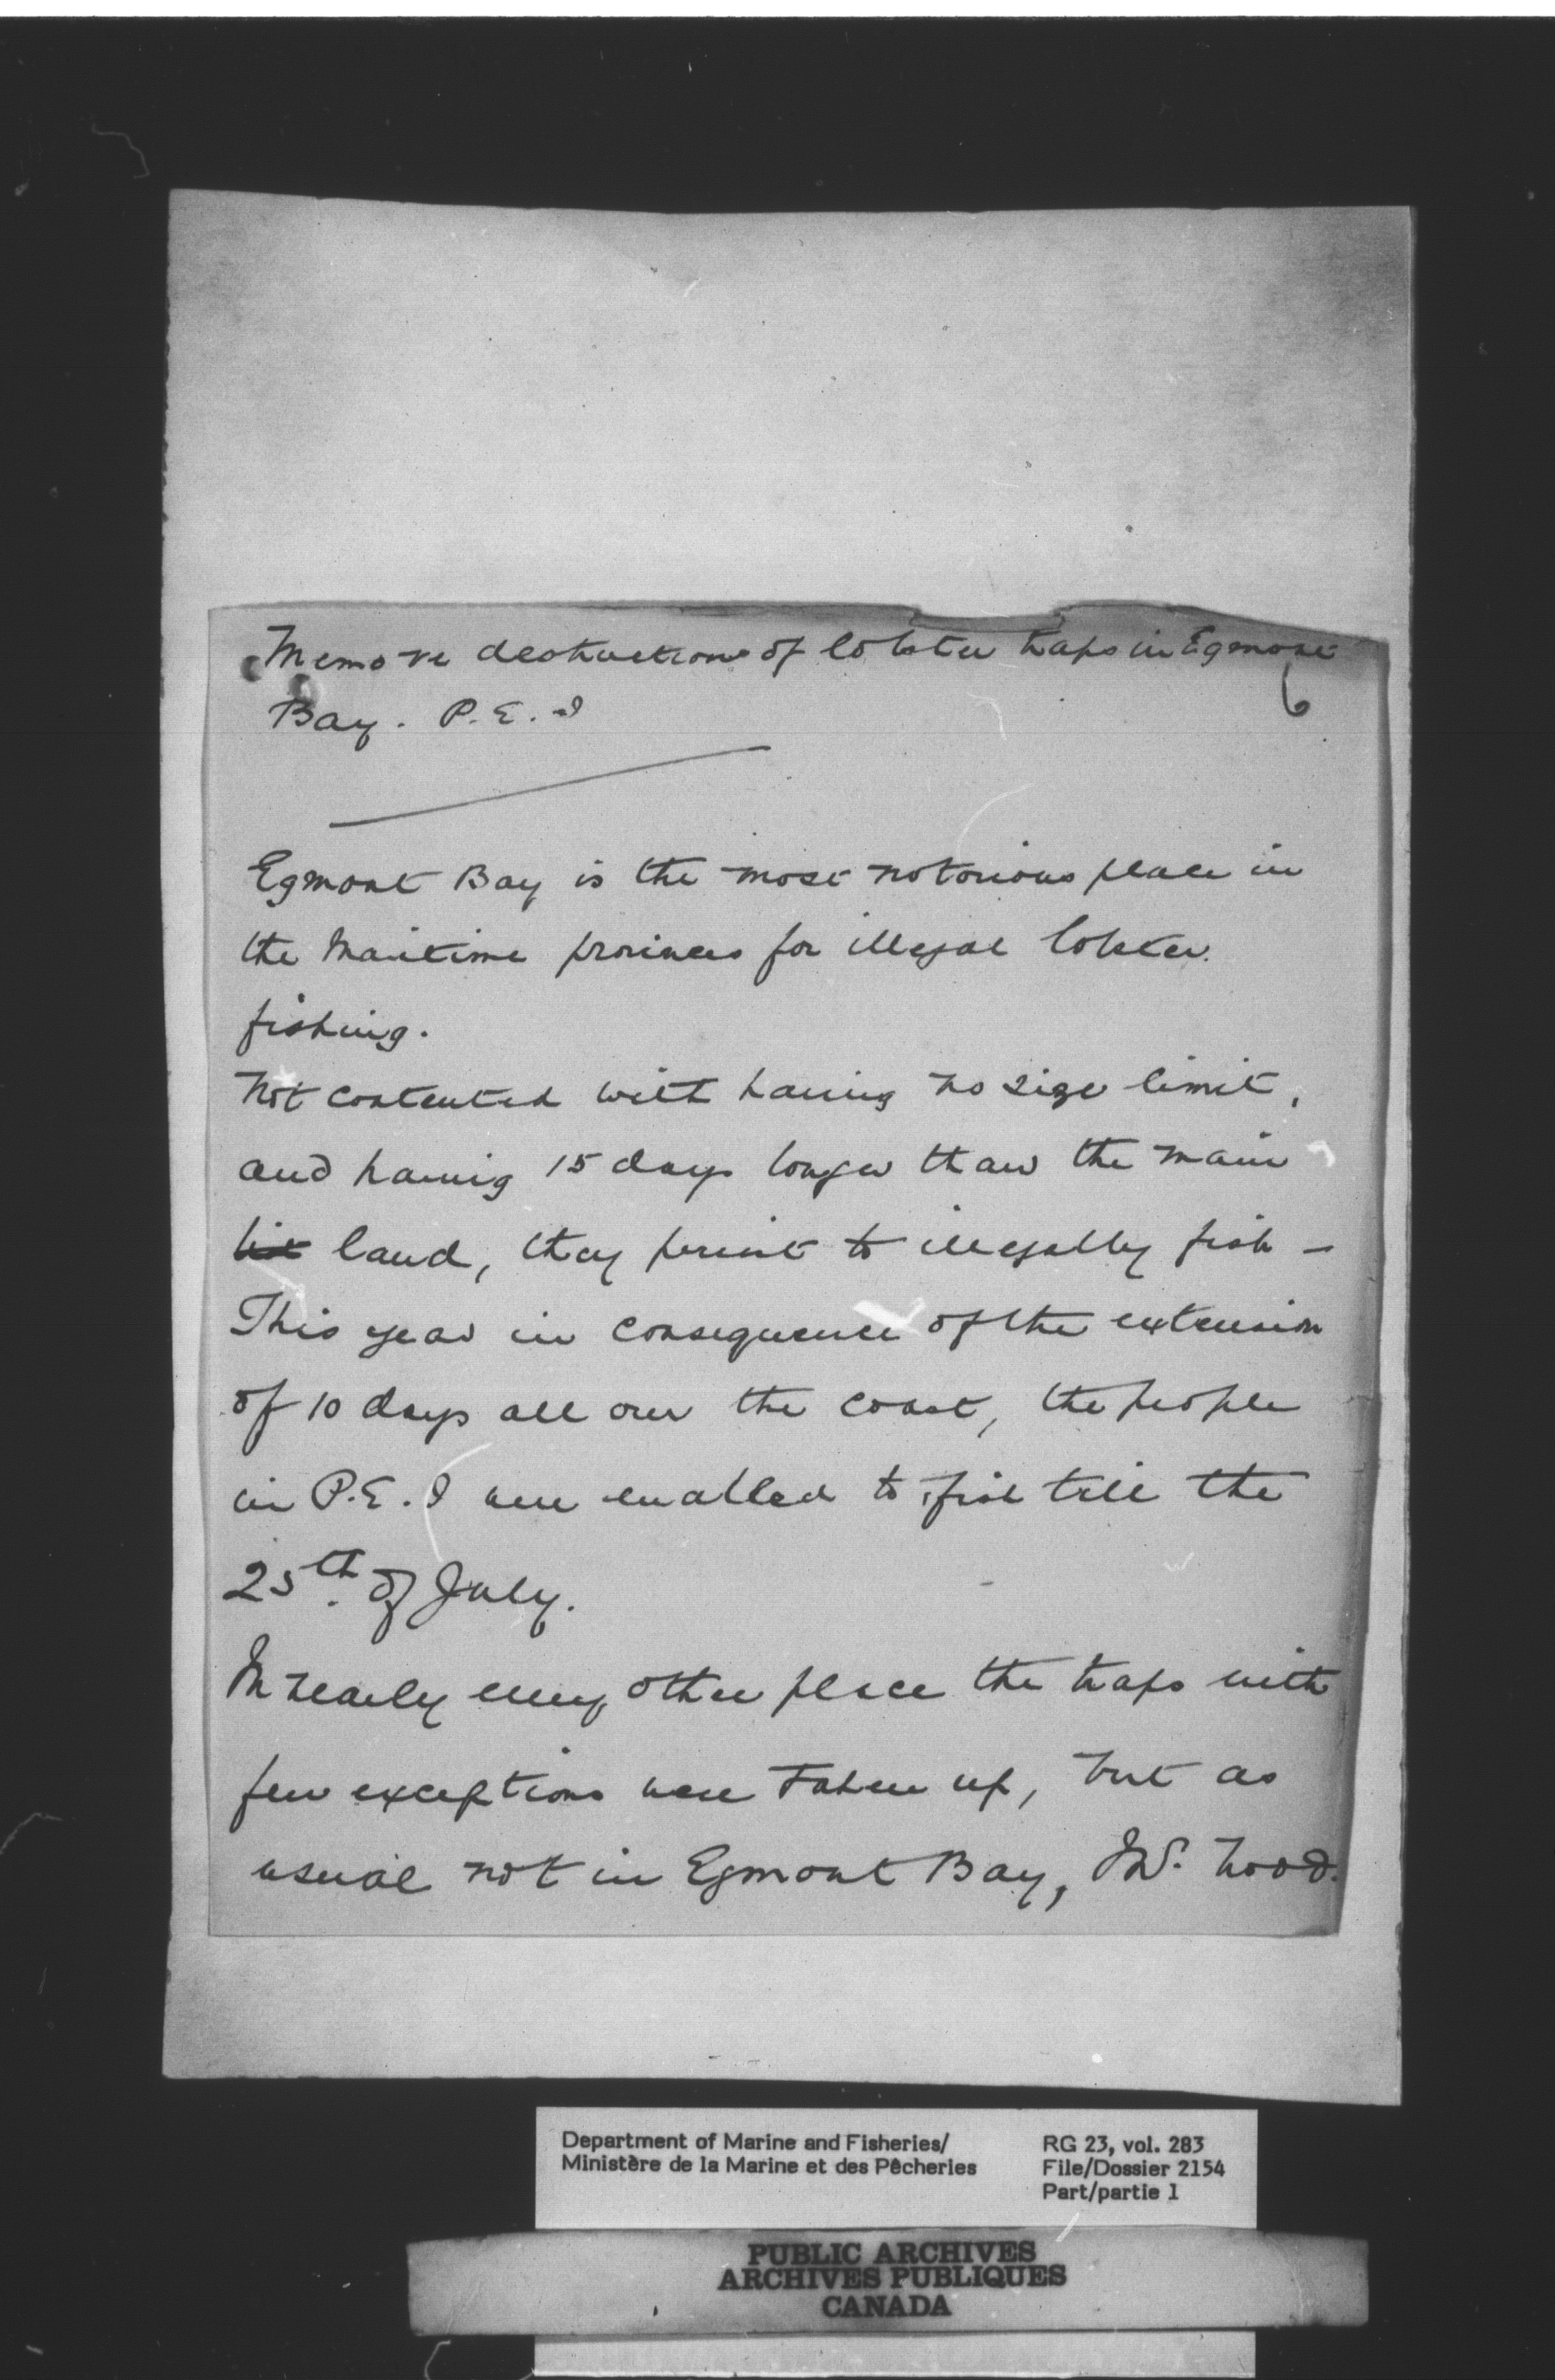 Memo re destruction of lobster traps in Egmont
6
Bay. P.E.I
Egmont Bay is the most notorious place in
the Maritime provinces for illegal lobster
fishing.
Not contented with having no size limit,
and having 15 days longer than the main
land, they persist to illegally fish -
This year in consequence of the extension
of 10 days all over the coast, the people
in P.E.I were enabled to fish till the
25th. of July.
In nearly every other place the traps with
few exceptions were taken up, but as
usual not in Egmont Bay,
Department of Marine and Fisheries/
Ministère de la Marine et des Pêcheries
RG 23, vol. 283
File/Dossier 2154
Part/partie 1
PUBLIC ARCHIVES
ARCHIVES PUBLIQUES
CANADA